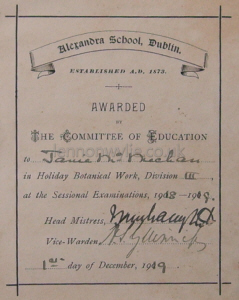 Alexandra School, Dublin.
ESTABLISHED A.D. 1873.
AWARDED
BY
THE COMMITTEE OF EDUCATION
to
in Holiday Botanical Work, Division III
at the Sessional Examinations, 1918-1919.
Head Mistress,
Vice-Warden,
1st day of December, 1919